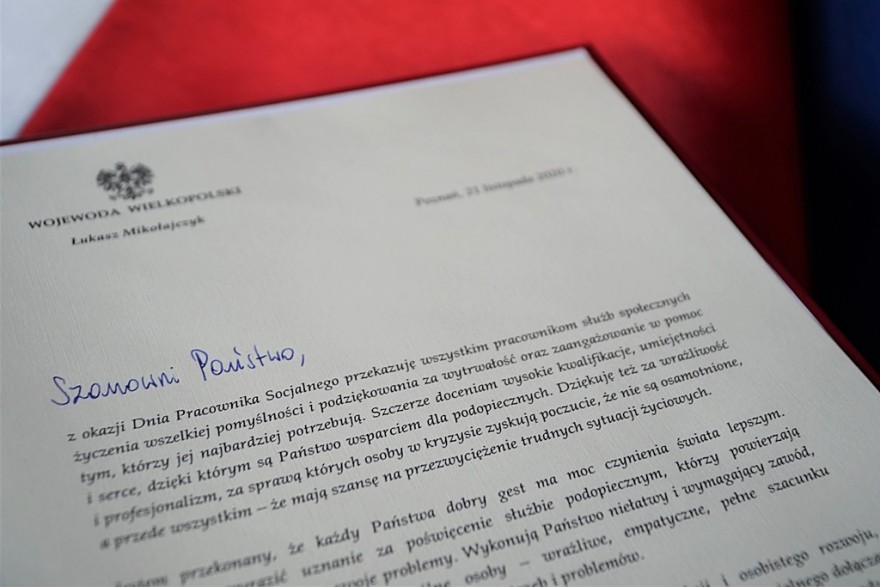 WOJEWODA WIELKOPOLSKI
Łukasz Mikołajczyk
Poznań, 21 listopada 2020 r.
Szanowni Państwo,
z okazji Dnia Pracownika Socjalnego przekazuję wszystkim pracownikom służb społecznych
życzenia wszelkiej pomyślności i podziękowania za wytrwałość oraz zaangażowanie w pomoc
tym, którzy jej najbardziej potrzebują. Szczerze doceniam wysokie kwalifikacje, umiejętności
i serce, dzięki którym są Państwo wsparciem dla podopiecznych. Dziękuję też za wrażliwość
i profesjonalizm, za sprawą których osoby w kryzysie zyskują poczucie, że nie są osamotnione,
a przede wszystkim – że mają szansę na przezwyciężenie trudnych sytuacji życiowych.
przekonany, że każdy Państwa dobry gest ma moc czynienia świata lepszym.
uznanie za poświęcenie służbie podopiecznym, którzy powierzają
swoje problemy. Wykonują Państwo niełatwy i wymagający zawód,
osoby – wrażliwe, empatyczne, pełne szacunku
i problemów.
i osobistego rozwoju,